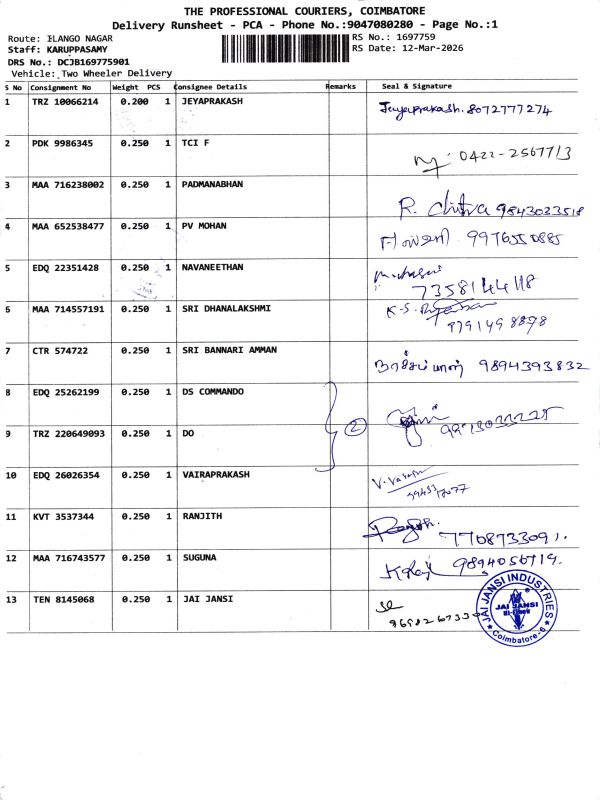 THE PROFESSIONAL COURIERS, COIMBATORE
Delivery Runsheet - PCA - Phone No.:9047080280 - Page No.:1
Route: ELANGO NAGAR
RS No.: 1697759
Staff: KARUPPASAMY
RS Date: 12-Mar-2026
DRS No.: DCJB169775901
Vehicle: Two Wheeler Delivery
S No Consignment No Weight PCS Consignee Details Remarks Seal & Signature
1 TRZ 10066214 0.200 1 JEYAPRAKASH Jeyaprakash. 8072777274
2 PDK 9986345 0.250 1 TCI F 0422-2567713
3 MAA 716238002 0.250 1 PADMANABHAN R. Chitra 9843023518
4 MAA 652538477 0.250 1 PV MOHAN 9976550885
5 EDQ 22351428 0.250 1 NAVANEETHAN
7358144118
6 MAA 714557191 0.250 1 SRI DHANALAKSHMI K.S.
8791498878
7 CTR 574722 0.250 1 SRI BANNARI AMMAN 9894393832
8 EDQ 25262199 0.250 1 DS COMMANDO
2
9 TRZ 220649093 0.250 1 DO
10 EDQ 26026354 0.250 1 VAIRAPRAKASH
11 KVT 3537344 0.250 1 RANJITH 7708733091.
12 MAA 716743577 0.250 1 SUGUNA 9894056719.
13 TEN 8145068 0.250 1 JAI JANSI
JAI JANSI INDUSTRIES
JAI JANSI
Coimbatore-6